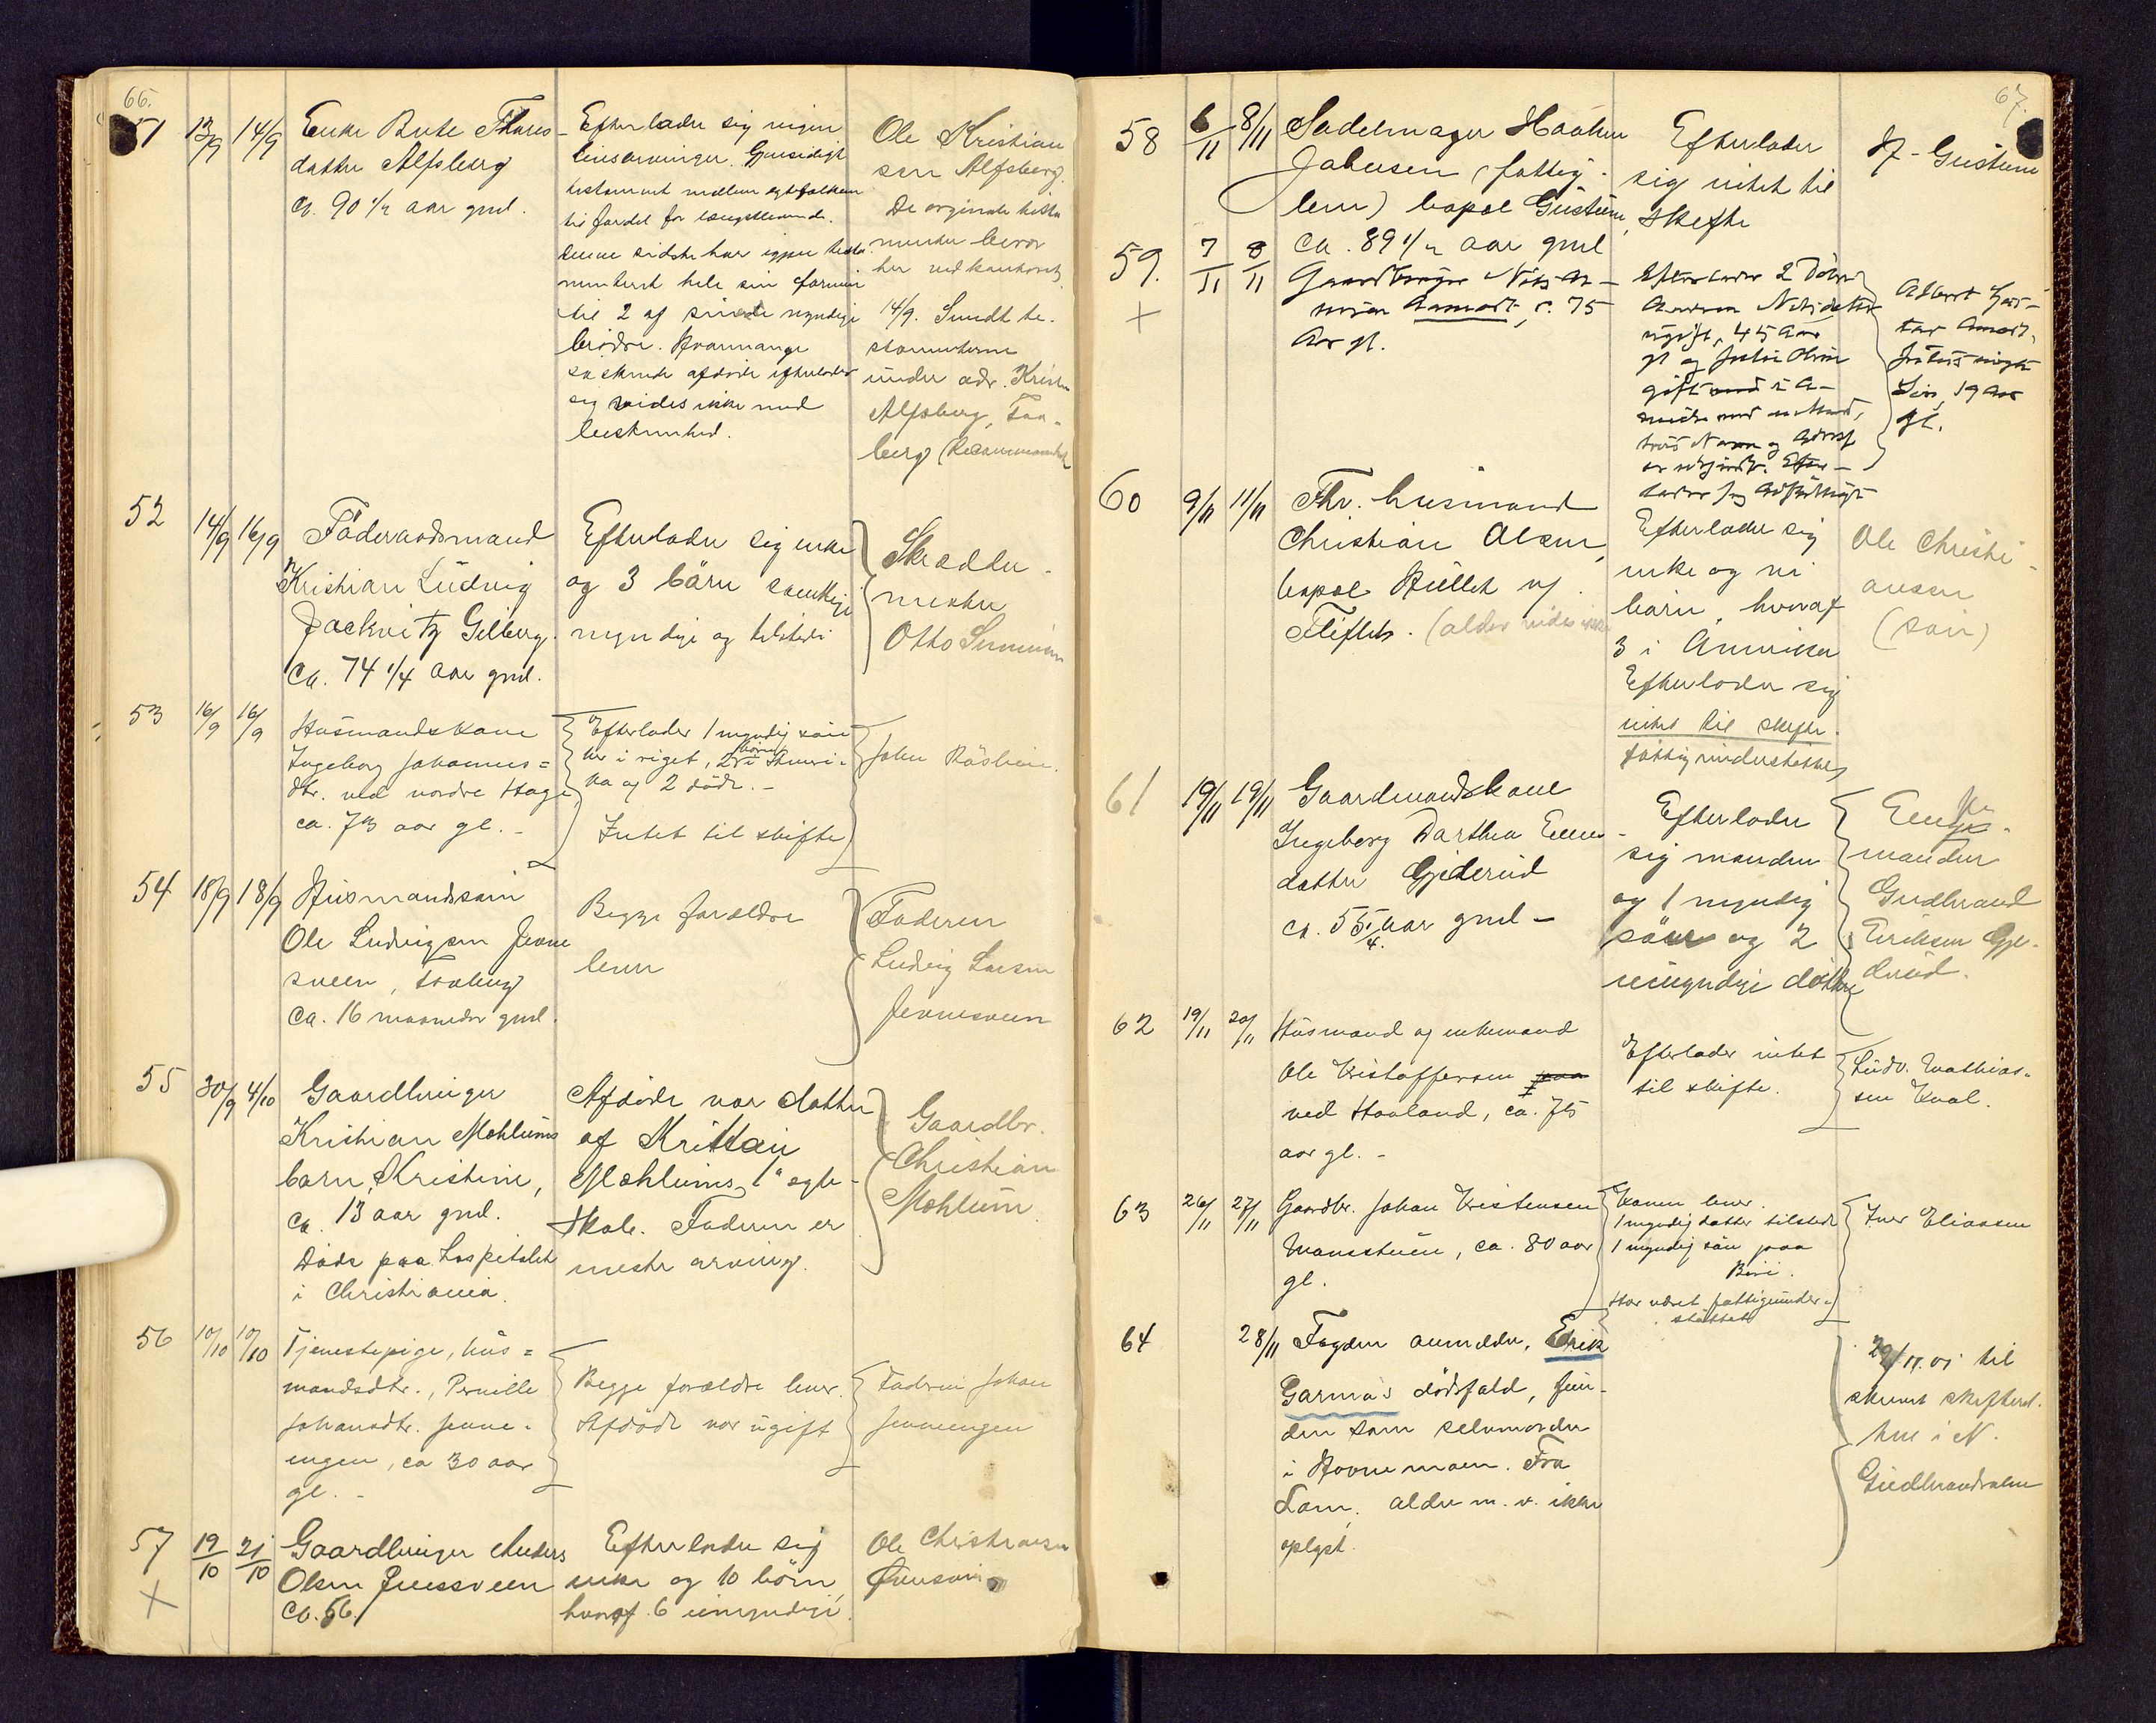 66.
51 13/9 14/9
Enke Rute Thores-
datter Alfsberg
ca. 90 1/2 aar gml.
Efterlader sig ingen
livsarvinger. Gjensidigt
testament mellem egtefolkene
til fordel for længstlevende.
Denne sidste har igjen testa-
menteret hele sin formue
til 2 af sine myndige
brödre. Hvormange
söskende afdöde efterlader
sig vides ikke med
bestemthed.
Ole Kristian
sen Alfsberg.
De orginale testa
menter beror
her ved kontoret
14/9. Sendt te-
stamenterne
under adr. Kristen
Alfsberg, Faa-
berg (Recommanderet
52 14/9 16/9
Föderaadsmand
Kristian Ludvig
Jackwitz Gilberg.
ca. 74 1/4 aar gml.
Efterlader sig enke
og 3 börn samtlige
myndige og tilstede
Skrædder-
mester
Otto
53 16/9 16/9
Husmandskone
Ingeborg Johannes=
dtr. ved nordre Hage
ca. 73 aar gl. -
Efterlader 1 myndig sön
her i riget, 2 börn i Ameri-
ka og 2 döde. -
Intet til skifte
John Röslien.
54 18/9 18/9
Husmandssön
Ole Ludvigsen Jevne
sveen, Faaberg
ca. 16 maaneder gml.
Begge forældre
lever
Faderen
Ludvig Larsen
Jevnesveen
55 30/9 4/10
Gaardbruger
Kristian Mæhlums
barn, Kristine,
ca. 13 aar gml.
Döde paa hospitalet
i Christiania.
Afdöde var datter
af Kristian
Mæhlums 1ste egte-
skab. Faderen er
neste arving.
Gaardbr.
Christian
Mæhlum
56 10/10 10/10
Tjenestepige, hus=
mandsdtr., Pernille
Johansdtr. Jevne-
engen, ca 30 aar
gl. -
Begge forældre lever.
Afdöde var ugift
Faderen Johan
Jevneengen
57 19/10 21/10
Gaardbruger Anders
Olsen Jevnesveen
ca. 56.
Efterlader sig
enke og 10 börn,
hvoraf 6 umyndige.
Ole Christiansen
67.
58 6/11 8/11
Sadelmager Haaken
Jakobsen (fattig-
lem) bopæl Gustum,
ca. 89 1/2 aar gml
Efterlader
sig intet til
skifte
H. Gustum
59. 7/11 8/11
Gaardbruger Nils An-
Aamodt, c. 75
Aar gl.
Efterlader 2 Döttre
Nilsdatter
ugift, 45 Aar
gl og
gift med i A-
hvis Navn og Adresse
Albert Gus-
tav Aamodt,
Sön, 19 Aar
gl.
60 9/11 11/11
Fhv. husmand
Christian Olsen,
bopæl Hullet af
Fliflet. (alder vides ikke
Efterlader sig
enke og ni
börn, hvoraf
3 i Amerika
Efterlader sig
intet til skifte.
fattigunderstöttet
Ole Christi-
ansen
(sön)
61 19/11 19/11
Gaardmandskone
Ingeborg Dorthea Evens-
datter Gjederud
ca. 55 1/4 aar gml -
Efterlader
sig manden
og 1 myndig
sön og 2
umyndige döttre
Enke-
manden
Gudbrand
Eriksen Gje-
derud.
62 19/11 20/11
Husmand og enkemand
Ole Kristoffersen
ved Haaland, ca. 75
aar gl. -
Efterlader intet
til skifte.
Ludv. Mathias-
sen Kval.
63 26/11 27/11
Gaardbr. Johan Kristensen
Mansstuen, ca. 80 aar
gl.
Konen lever.
1 myndig datter tilstede
1 myndig sön paa
Biri.
Har været fattigunder-
stöttet
Iver Eliassen
64 28/11
Fogden anmelder, Erik
Garmo's dödsfald, fun-
den som selvmorder
i Hovnemoen. Fra
Lom, alder m. v. ikke
oplyst.
29/11. 01 til
skrevet skifteret-
ten i N.
Gudbrandsdalen